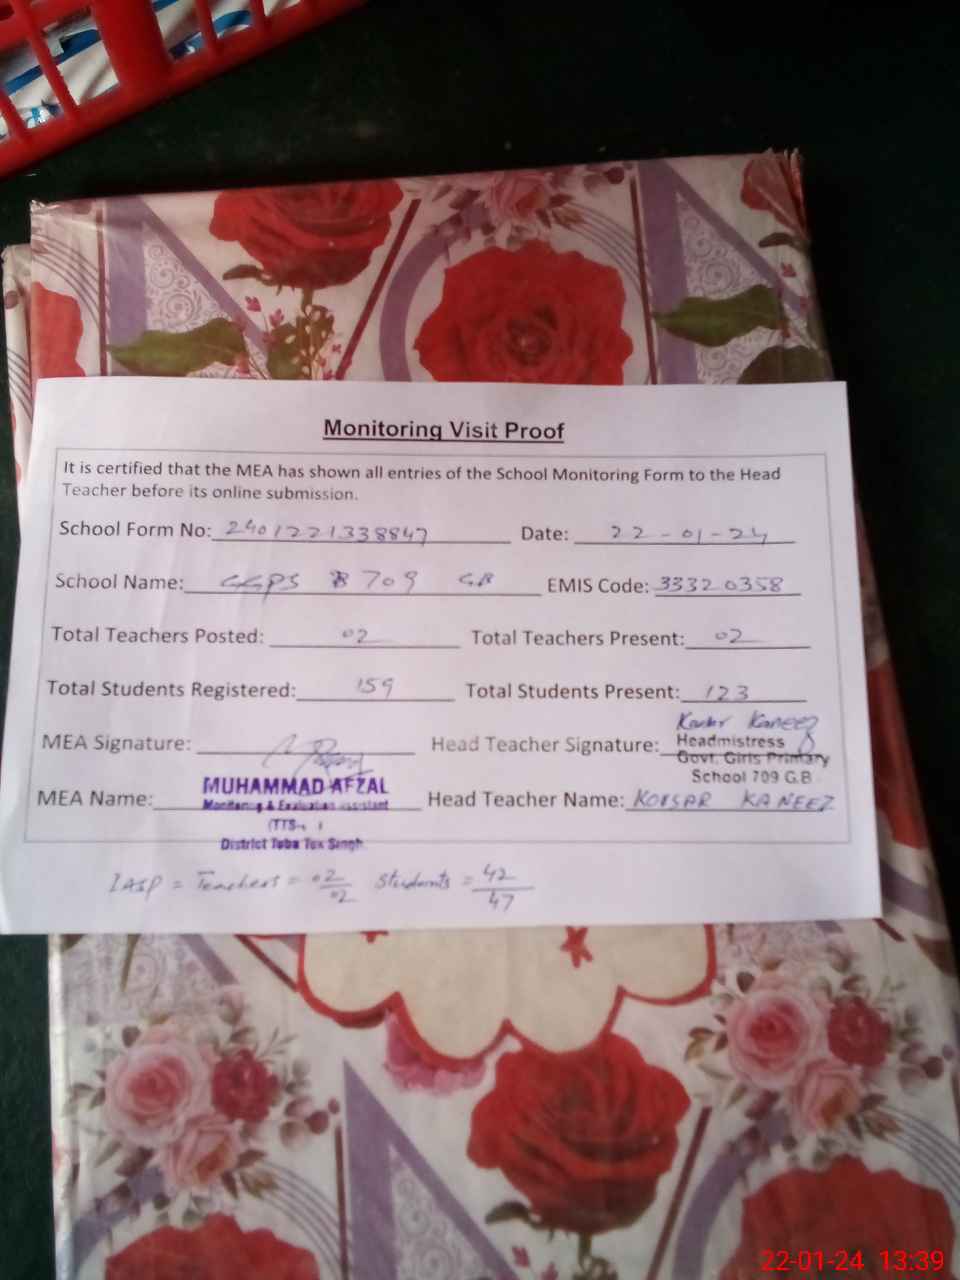 Monitoring Visit Proof
It is certified that the MEA has shown all entries of the School Monitoring Form to the Head
Teacher before its online submission.
School Form No: 2401221338847 Date: 22-01-24
School Name: GGPS 709 GB EMIS Code: 33320358
Total Teachers Posted: 02 Total Teachers Present: 02
Total Students Registered: 159 Total Students Present: 123
MEA Signature: Head Teacher Signature: Kousar Kaneez
Headmistress
Govt. Girls Primary
School 709 G.B
MEA Name: MUHAMMAD AFZAL Head Teacher Name: KOUSAR KANEEZ
Monitoring & Evaluation Assistant
District Toba Tek Singh
IASP = Teachers = 02/02 Students = 42/47
22-01-24 13:39